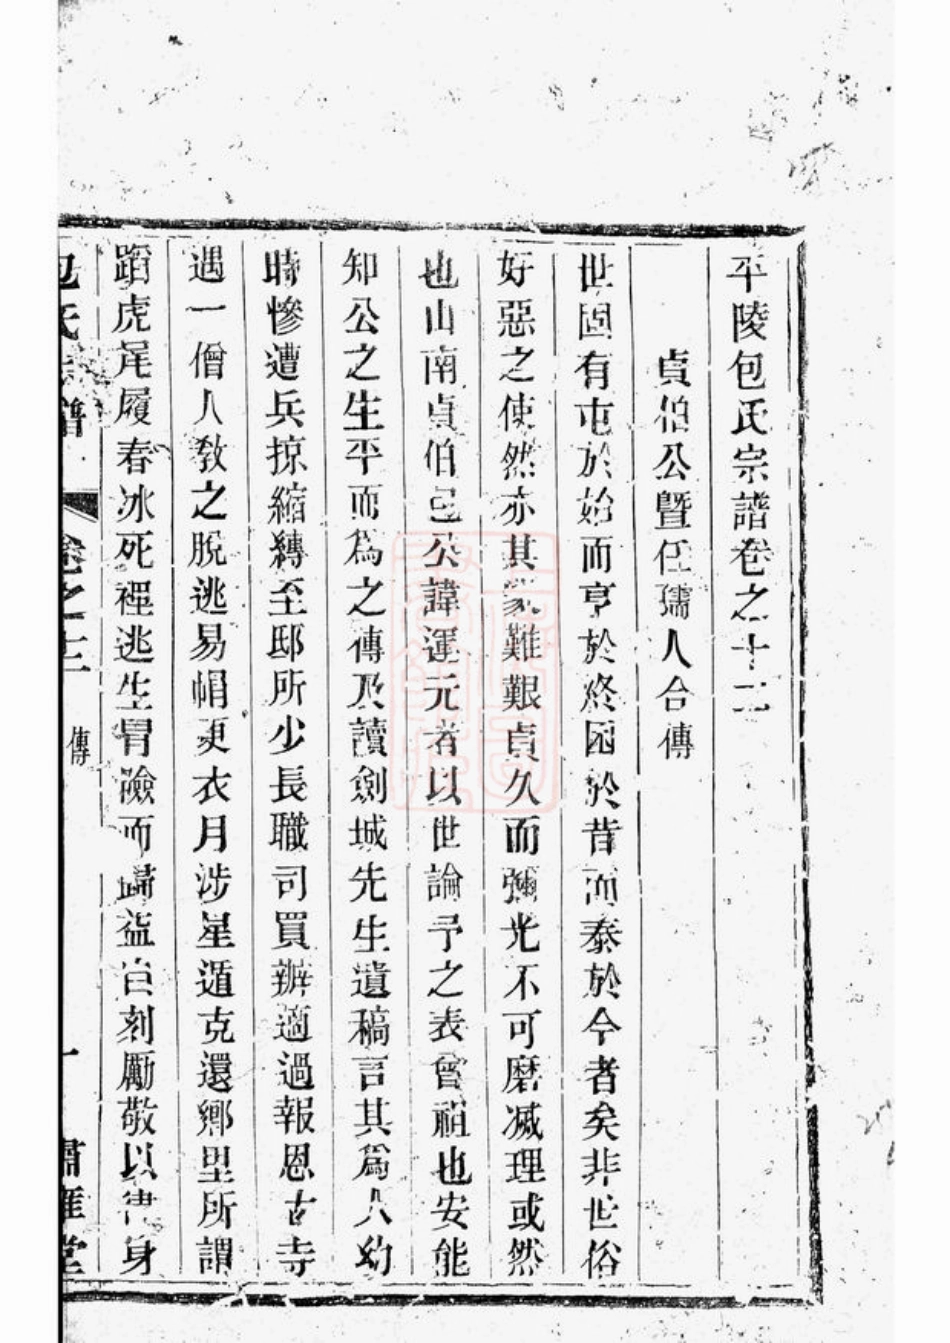 平陵包氏宗譜卷之十二
貞伯公曁任孺人合傳
世固有屯於始而亨於終困於昔而泰於今者矣非世俗
好惡之使然亦其家難艱貞久而彌光不可磨滅理或然
也山南貞伯包公諱運元者以世論予之表曾祖也安能
知公之生平而爲之傳及讀劍城先生遺稿言其爲人幼
時慘遭兵掠縮縳至邸所少長職司買辦適過報恩古寺
遇一僧人教之脫逃易帽更衣月涉星遁克還鄉里所謂
蹈虎尾履春冰死裡逃生冒險而歸益自刻勵敬以律身
包氏宗譜 卷之十二 傳 一 肅雍堂